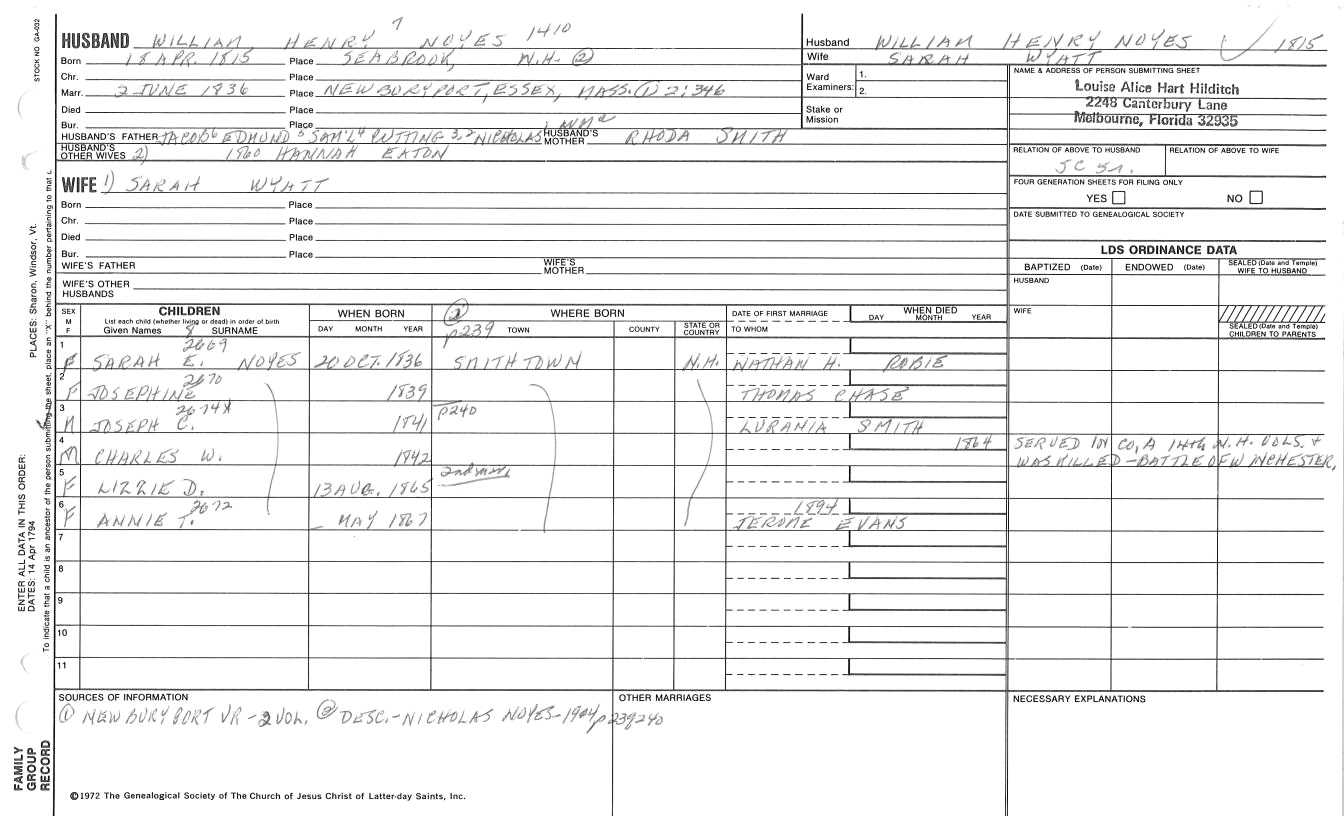 STOCK NO GA-032
7
HUSBAND WILLIAM HENRY NOYES 1410
Born 18 APR. 1815 Place SEABROOK, N.H. ②
Chr. Place
Marr. 2 JUNE 1836 Place NEWBURYPORT, ESSEX, MASS. ① 2:346
Died Place
Bur. Place
HUSBAND'S FATHER JACOB⁶ EDMUND⁵ SAM'L⁴ CUTTING³,² NICHOLAS HUSBAND'S MOTHER RHODA SMITH
HUSBAND'S OTHER WIVES 2) 1860 HANNAH EATON
WIFE 1) SARAH WYATT
Born Place
Chr. Place
Died Place
Bur. Place
WIFE'S FATHER WIFE'S MOTHER
WIFE'S OTHER HUSBANDS
Husband WILLIAM HENRY NOYES 1815
Wife SARAH WYATT
Ward Examiners: 1.
2.
Stake or Mission
NAME & ADDRESS OF PERSON SUBMITTING SHEET
Louise Alice Hart Hilditch
2248 Canterbury Lane
Melbourne, Florida 32935
RELATION OF ABOVE TO HUSBAND RELATION OF ABOVE TO WIFE
FOUR GENERATION SHEETS FOR FILING ONLY
YES NO
DATE SUBMITTED TO GENEALOGICAL SOCIETY
LDS ORDINANCE DATA
BAPTIZED (Date) ENDOWED (Date) SEALED (Date and Temple) WIFE TO HUSBAND
HUSBAND
WIFE
SEALED (Date and Temple) CHILDREN TO PARENTS
SEX M F
CHILDREN
List each child (whether living or dead) in order of birth
Given Names 8 SURNAME
WHEN BORN
DAY MONTH YEAR
② WHERE BORN
p239 TOWN COUNTY STATE OR COUNTRY
DATE OF FIRST MARRIAGE
TO WHOM
WHEN DIED
DAY MONTH YEAR
1 2669
F SARAH E. NOYES 20 OCT. 1836 SMITHTOWN N.H. NATHAN H. ROBIE
2 2670
F JOSEPHINE 1839 THOMAS CHASE
3 2674X p240
M JOSEPH C. 1841 LURANIA SMITH
4 1864 SERVED IN CO, A 14th N.H. VOLS. +
M CHARLES W. 1842 WAS KILLED - BATTLE OF WINCHESTER,
5 2nd mar.
F LIZZIE D. 13 AUG. 1865
6 2672 1894
F ANNIE T. MAY 1867 JEROME EVANS
7
8
9
10
11
SOURCES OF INFORMATION
① NEWBURYPORT VR - 2 VOL. ② DESC. - NICHOLAS NOYES - 1904 p 239 240
OTHER MARRIAGES
NECESSARY EXPLANATIONS
©1972 The Genealogical Society of The Church of Jesus Christ of Latter-day Saints, Inc.
FAMILY GROUP RECORD
ENTER ALL DATA IN THIS ORDER:
DATES: 14 Apr 1794
PLACES: Sharon, Windsor, Vt.
To indicate that a child is an ancestor of the person submitting the sheet, place an "X" behind the number pertaining to that c